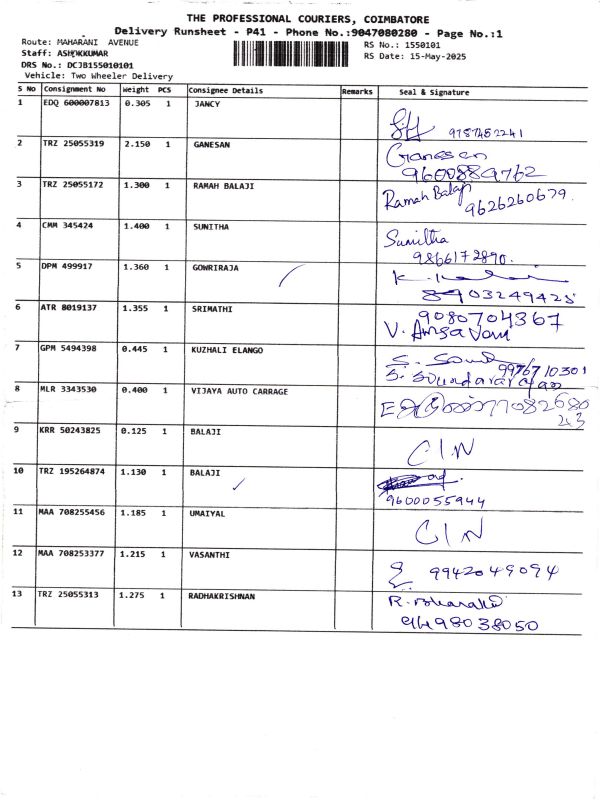 THE PROFESSIONAL COURIERS, COIMBATORE
Delivery Runsheet - P41 - Phone No.:9047080280 - Page No.:1
Route: MAHARANI AVENUE
RS No.: 1550101
Staff: ASHOKKUMAR
RS Date: 15-May-2025
DRS No.: DCJB155010101
Vehicle: Two Wheeler Delivery
S No Consignment No Weight PCS Consignee Details Remarks Seal & Signature
1 EDQ 600007813 0.305 1 JANCY
9787452241
2 TRZ 25055319 2.150 1 GANESAN
Ganesan
9600889762
3 TRZ 25055172 1.300 1 RAMAH BALAJI
Ramah Balaji
9626260679.
4 CMM 345424 1.400 1 SUNITHA
Sunitha
9866172890.
5 DPM 499917 1.360 1 GOWRIRAJA
8903249425
6 ATR 8019137 1.355 1 SRIMATHI
9080704367
V.
7 GPM 5494398 0.445 1 KUZHALI ELANGO
9976710301
S. Soundararajan
8 MLR 3343530 0.400 1 VIJAYA AUTO CARRAGE
7082680
43
9 KRR 50243825 0.125 1 BALAJI
CIN
10 TRZ 195264874 1.130 1 BALAJI
9600055944
11 MAA 708255456 1.185 1 UMAIYAL
CIN
12 MAA 708253377 1.215 1 VASANTHI
9942049094
13 TRZ 25055313 1.275 1 RADHAKRISHNAN
R.
9498038050